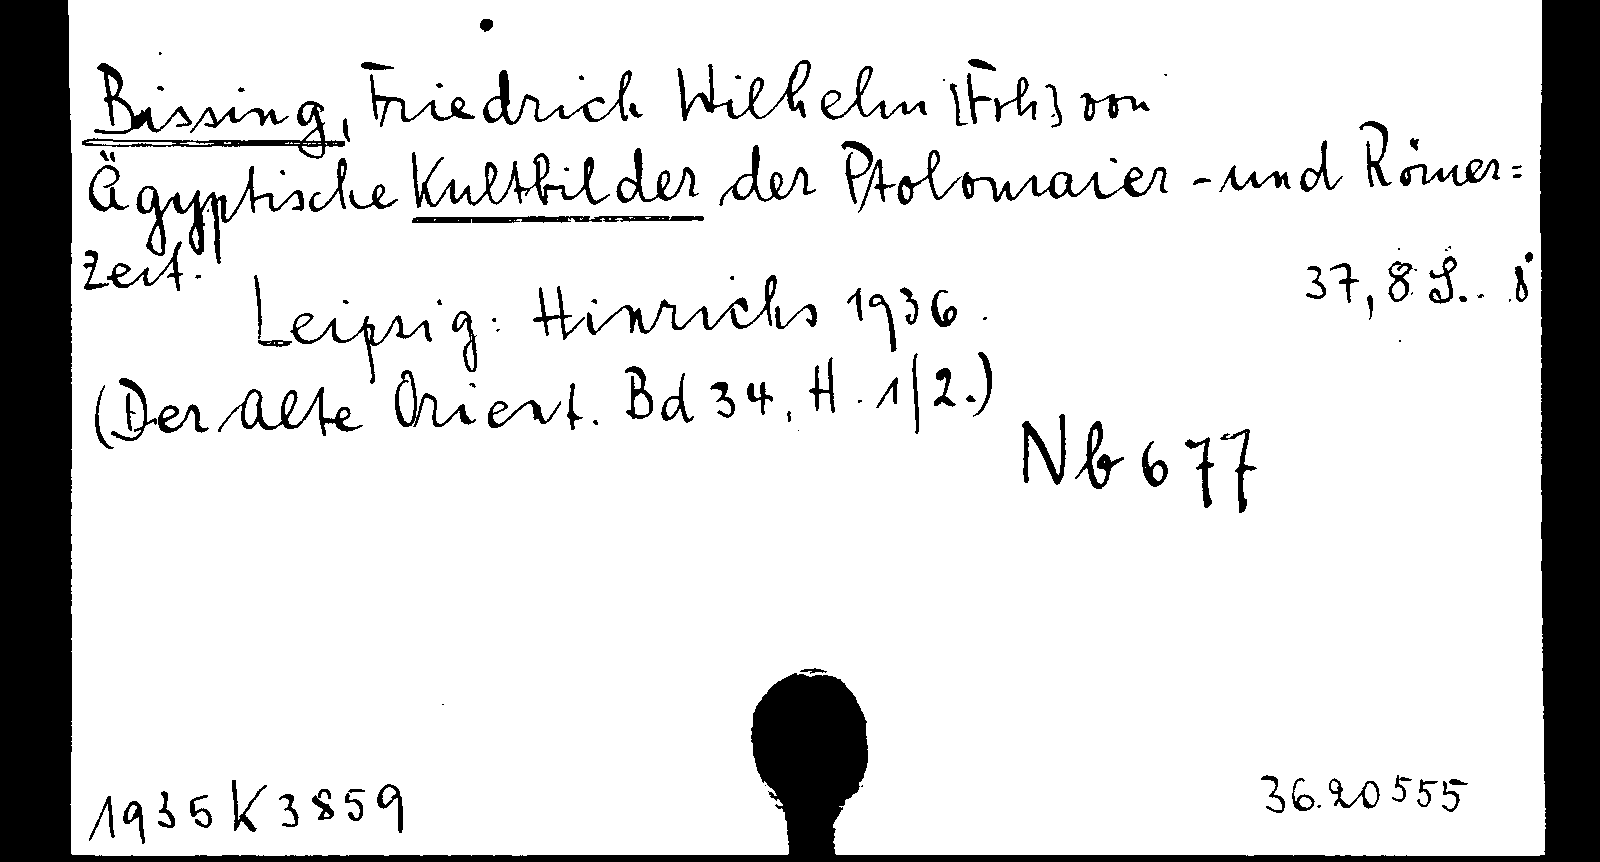 Bissing, Friedrich Wilhelm [Frh] von
Ägyptische Kultbilder der Ptolomaier- und Römer=
zeit.
37, 8 S. 8°
Leipzig: Hinrichs 1936.
(Der Alte Orient. Bd 34, H. 1/2.)
Nb 677
1935 K 3859
36.20555